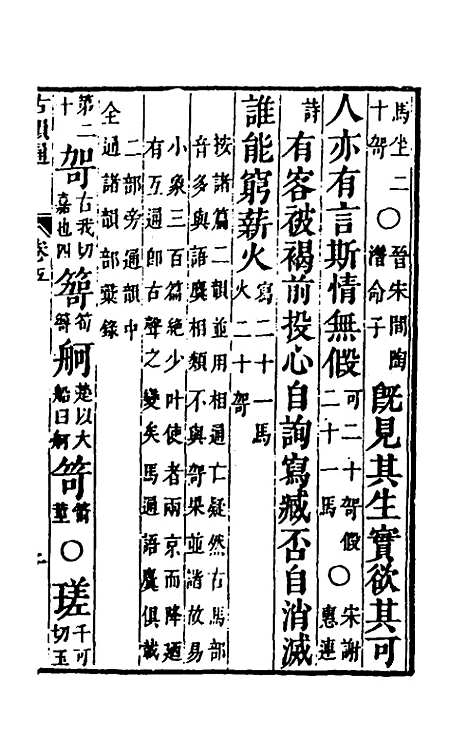 馬坐二十哿○晉宋間陶潛命子旣見其生實欲其可
人亦有言斯情無假可二十哿假二十一馬○宋謝惠連
詩有客被褐前投心自詢寫臧否自消滅
誰能窮薪火寫二十一馬火二十哿
按諸篇二韻並用相通亡疑然古馬部
音多與語麌相類不與哿果並諧故易
小象三百篇絶少叶使者兩京而降廼
有互通郎古聲之變矣馬通語麌俱載
二部旁通韻中
全通諸韻部彙錄
第二十哿古我切嘉也四笴笴舸楚以大船曰舸笴○瑳千可切玉
古韻通
卷五